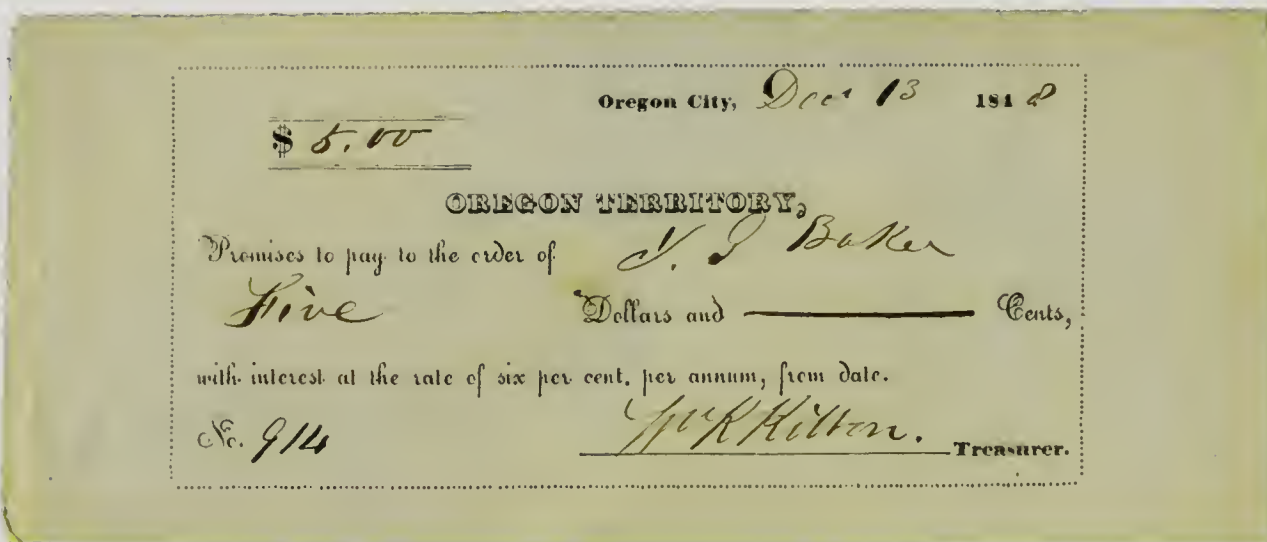 Oregon City, Dec 13 1848
$ 5.00
OREGON TERRITORY,
Promises to pay to the order of J. G Baker
Five Dollars and ——— Cents,
with interest at the rate of six per cent. per annum, from date.
No. 914 Wm K Kilborn. Treasurer.